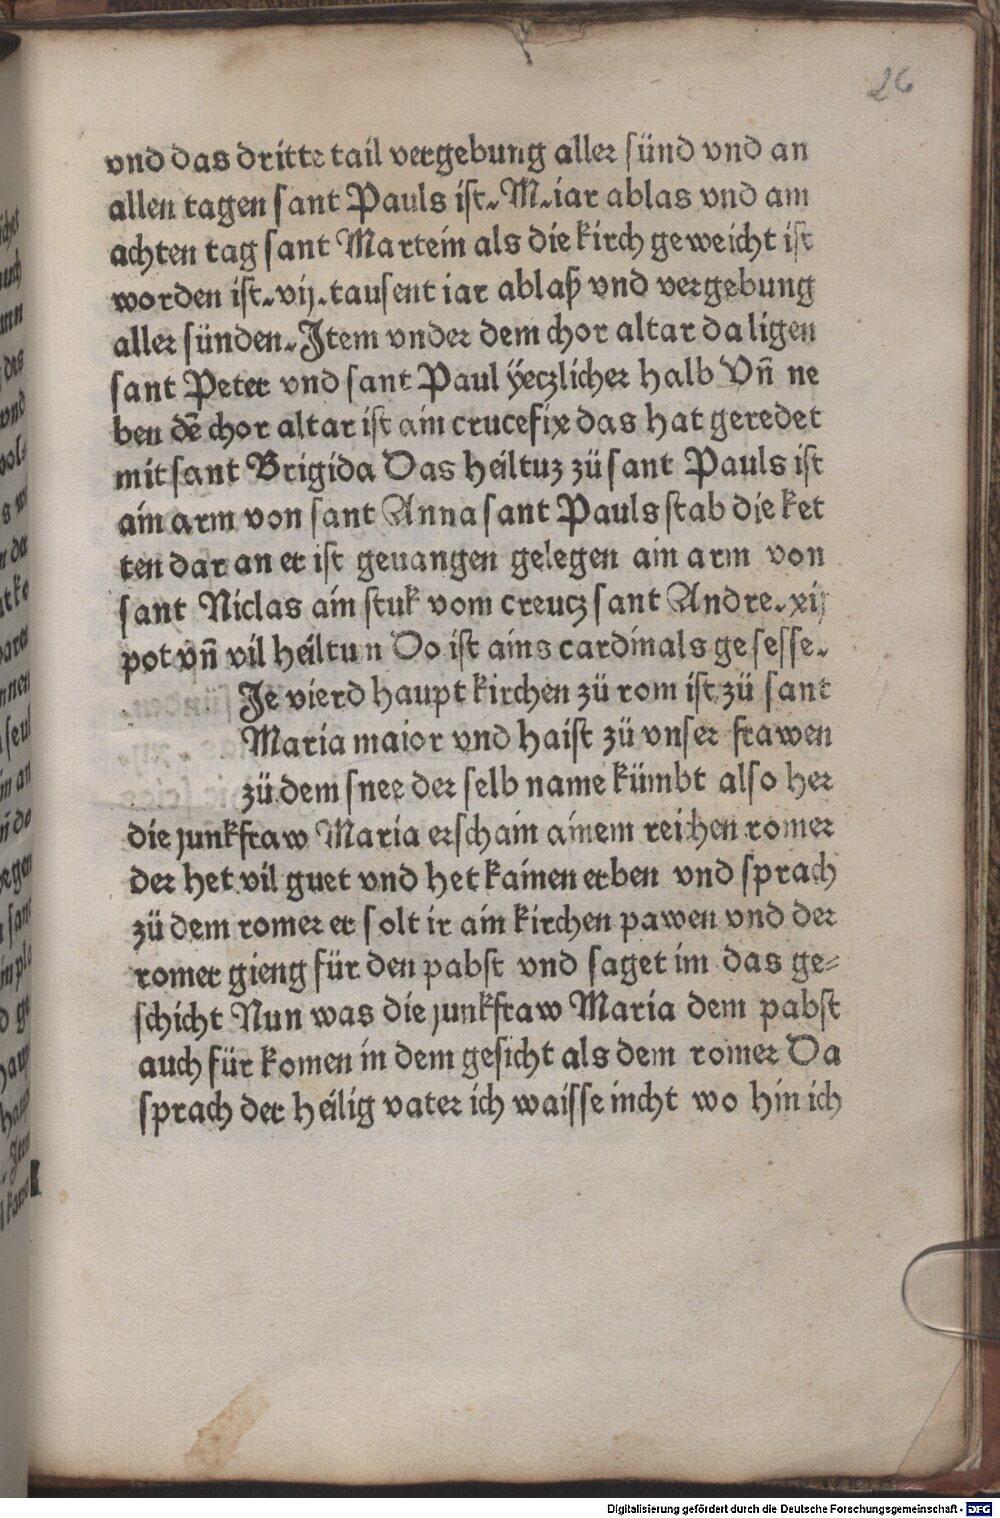 26
vnd das dritte tail vergebung aller sünd vnd an
allen tagen sant Pauls ist. M. iar ablas vnd am
achten tag sant Martein als die kirch geweicht ist
worden ist. vij. tausent iar ablaß vnd vergebung
aller sünden. Item vnder dem chor altar da ligen
sant Peter vnd sant Paul ÿeczlicher halb Vn̄ ne
ben dē chor altar ist ain crucefix das hat geredet
mit sant Brigida Das heiltuz zü sant Pauls ist
ain arm von sant Anna sant Pauls stab die ket
ten dar an er ist geuangen gelegen ain arm von
sant Niclas ain stuk vom creucz sant Andre. xij
pot vn̄ vil heiltun Do ist ains cardinals gesesse.
Je vierd haupt kirchen zü rom ist zü sant
Maria maior vnd haist zü vnser frawen
zü dem snee der selb name kümbt also her
die junkfraw Maria erschain ainem reichen romer
der het vil guet vnd het kainen erben vnd sprach
zü dem romer er solt ir ain kirchen pawen vnd der
romer gieng für den pabst vnd saget im das ge=
schicht Nun was die junkfraw Maria dem pabst
auch für komen in dem gesicht als dem romer Da
sprach der heilig vater ich waisse nicht wo hin ich
Digitalisierung gefördert durch die Deutsche Forschungsgemeinschaft - DFG